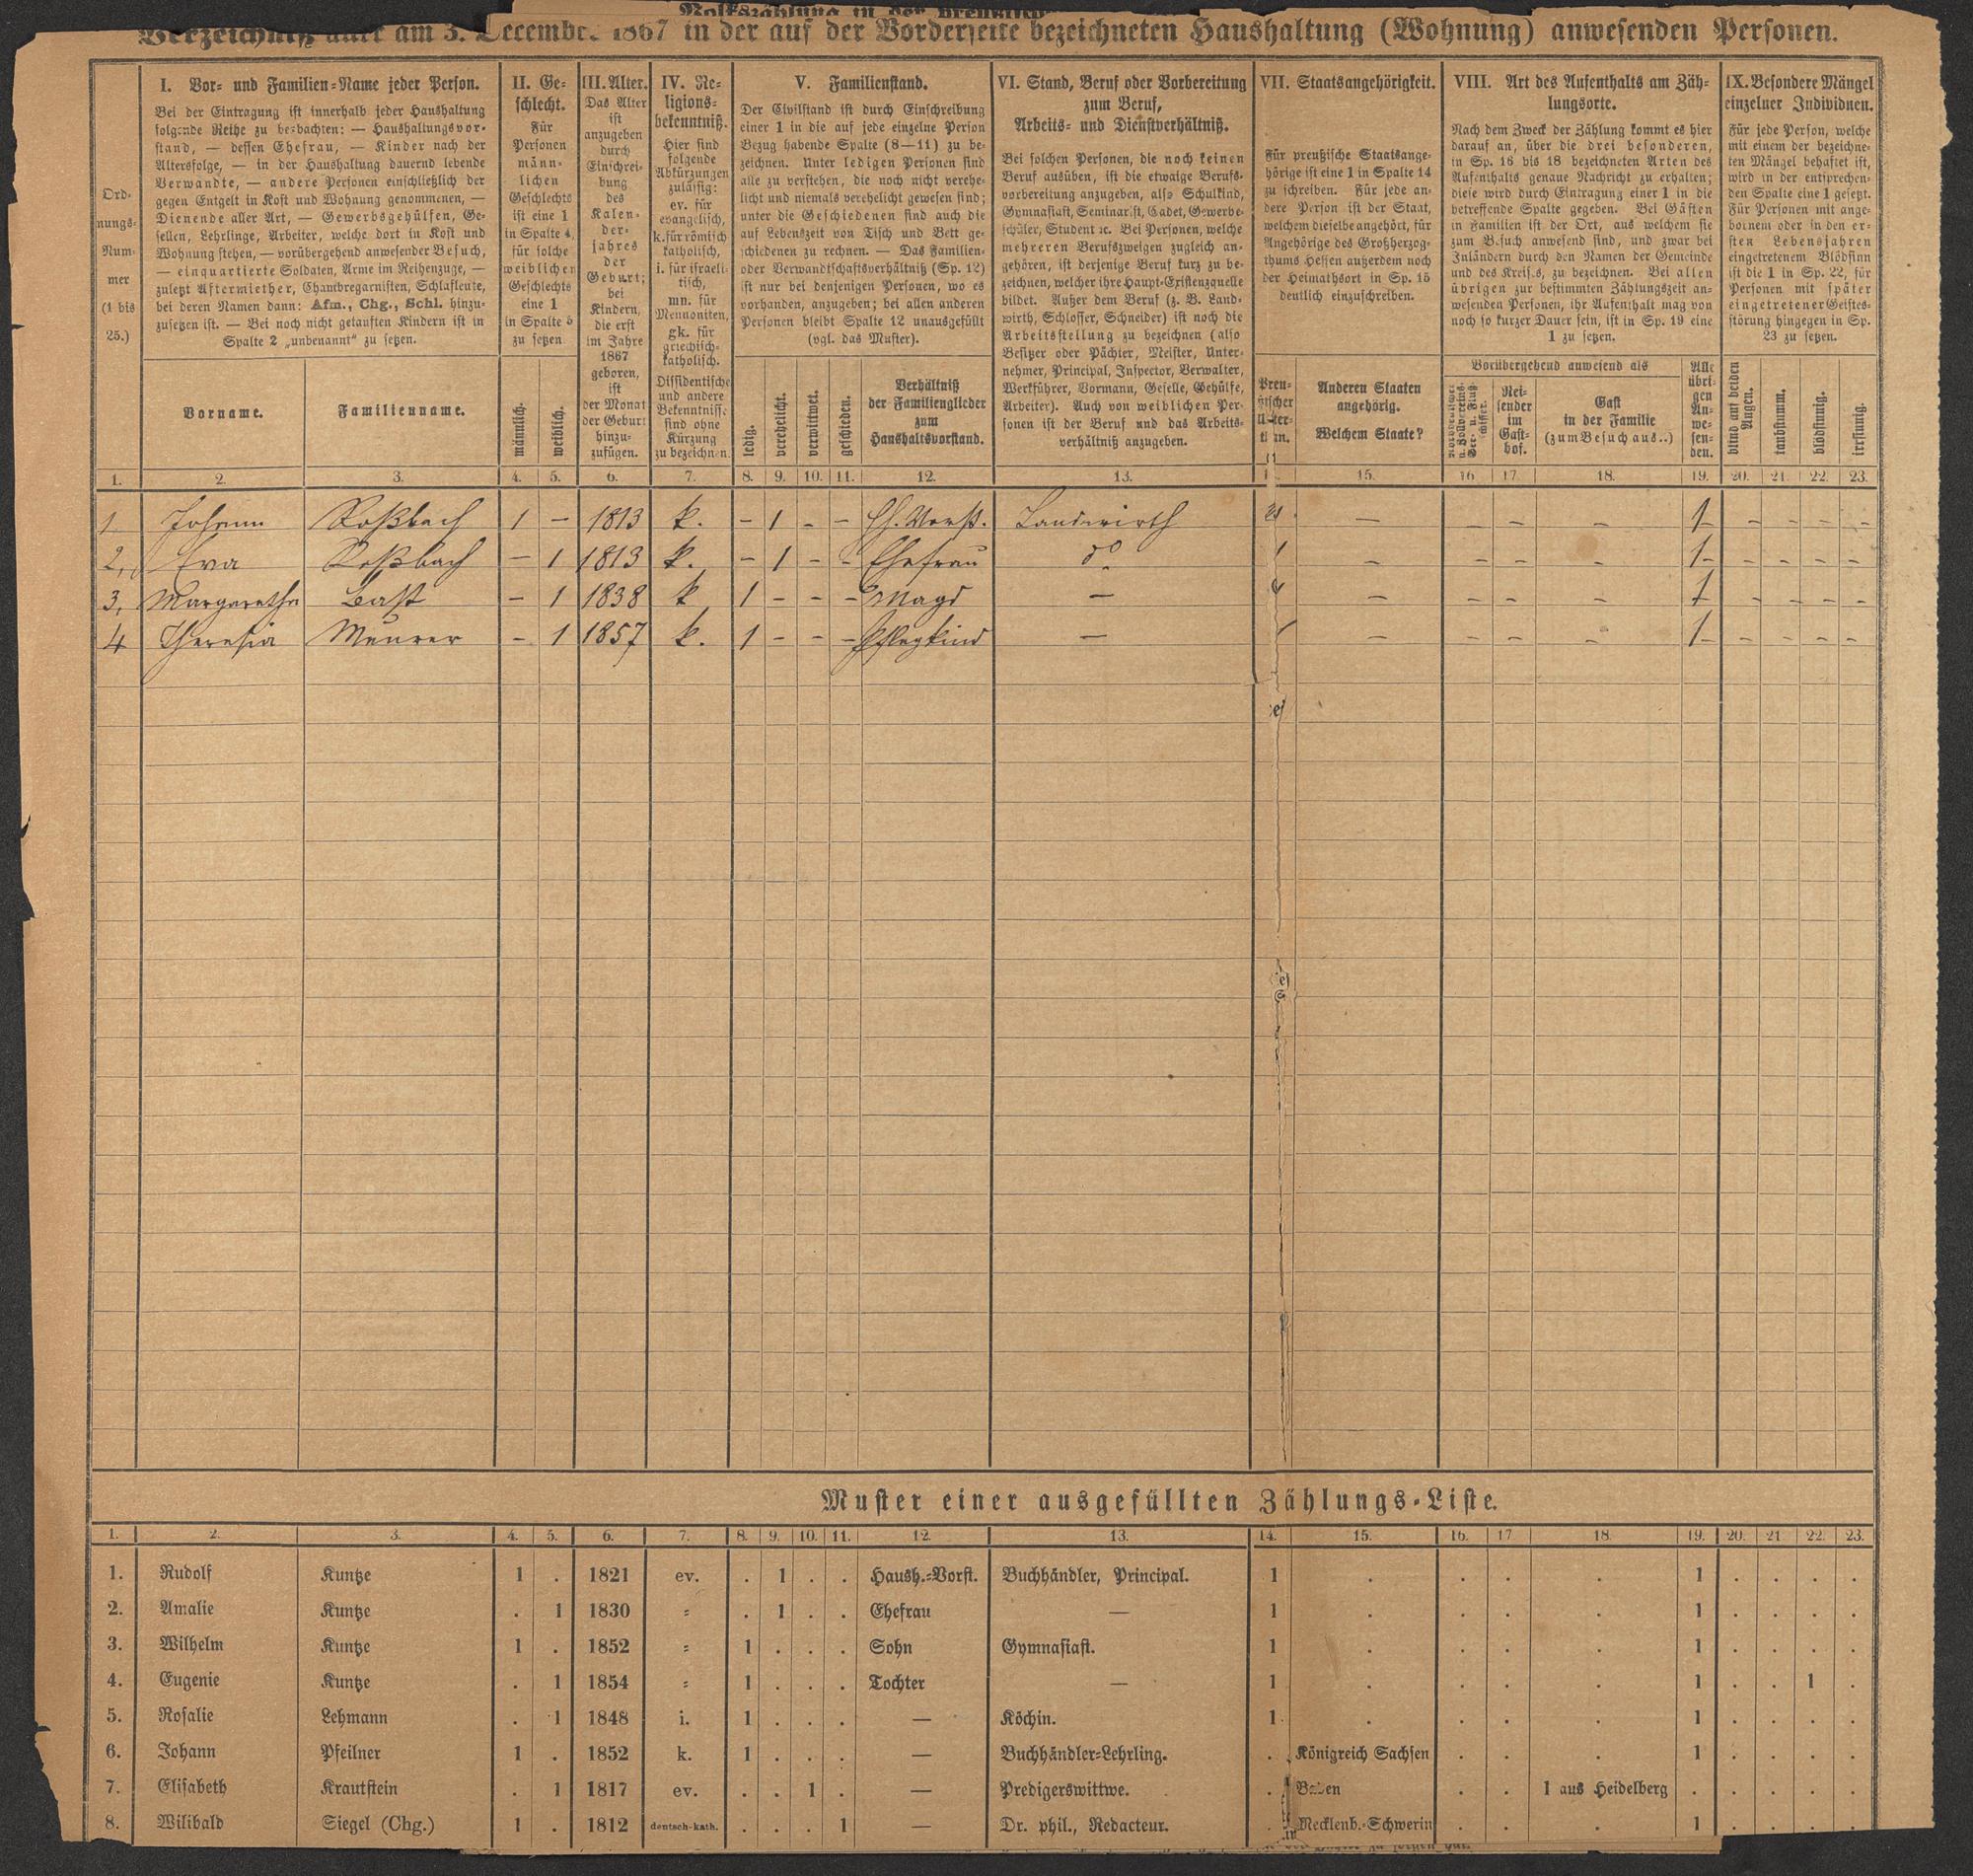 Volkszählung in der
Verzeichniß aller am 3. December 1867 in der auf der Vorderseite bezeichneten Haushaltung (Wohnung) anwesenden Personen.
Ord-
nungs-
Num-
mer
(1 bis
25.)
I. Vor- und Familien-Name jeder Person.
Bei der Eintragung ist innerhalb jeder Haushaltung
folgende Reihe zu beobachten: — Haushaltungsvor-
stand, — dessen Ehefrau, — Kinder nach der
Altersfolge, — in der Haushaltung dauernd lebende
Verwandte, — andere Personen einschließlich der
gegen Entgelt in Kost und Wohnung genommenen, —
Dienende aller Art, — Gewerbsgehülfen, Ge-
sellen, Lehrlinge, Arbeiter, welche dort in Kost und
Wohnung stehen, — vorübergehend anwesender Besuch,
— einquartierte Soldaten, Arme im Reihenzuge, —
zuletzt Aftermiether, Chambregarnisten, Schlafleute,
bei deren Namen dann: Afm., Chg., Schl. hinzu-
zusetzen ist. — Bei noch nicht getauften Kindern ist in
Spalte 2 „unbenannt“ zu setzen.
Vorname.
Familienname.
II. Ge-
schlecht.
Für
Personen
männ-
lichen
Geschlechts
ist eine 1
in Spalte 4,
für solche
weiblichen
Geschlechts
eine 1
in Spalte 5
zu setzen
männlich.
weiblich.
III. Alter.
Das Alter
ist
anzugeben
durch
Einschrei-
bung
des
Kalen-
der-
jahres
der
Geburt;
bei
Kindern,
die erst
im Jahre
1867
geboren,
ist
der Monat
der Geburt
hinzu-
zufügen.
IV. Re-
ligions-
bekenntniß.
Hier sind
folgende
Abkürzungen
zulässig:
ev. für
evangelisch,
k. für römisch
katholisch,
i. für israeli-
tisch,
mn. für
Mennoniten,
gk. für
griechisch-
katholisch.
Dissidentische
und andere
Bekenntnisse
sind ohne
Kürzung
zu bezeichnen.
V. Familienstand.
Der Civilstand ist durch Einschreibung
einer 1 in die auf jede einzelne Person
Bezug habende Spalte (8—11) zu be-
zeichnen. Unter ledigen Personen sind
alle zu verstehen, die noch nicht verehe-
licht und niemals verehelicht gewesen sind;
unter die Geschiedenen sind auch die
auf Lebenszeit von Tisch und Bett ge-
schiedenen zu rechnen. — Das Familien-
oder Verwandtschaftsverhältniß (Sp. 12)
ist nur bei denjenigen Personen, wo es
vorhanden, anzugeben; bei allen anderen
Personen bleibt Spalte 12 unausgefüllt
(vgl. das Muster).
ledig.
verehelicht.
verwittwet.
geschieden.
Verhältniß
der Familienglieder
zum
Haushaltsvorstand.
VI. Stand, Beruf oder Vorbereitung
zum Beruf,
Arbeits- und Dienstverhältniß.
Bei solchen Personen, die noch keinen
Beruf ausüben, ist die etwaige Berufs-
vorbereitung anzugeben, also Schulkind,
Gymnasiast, Seminarist, Cadet, Gewerbe-
schüler, Student ꝛc. Bei Personen, welche
mehreren Berufszweigen zugleich an-
gehören, ist derjenige Beruf kurz zu be-
zeichnen, welcher ihre Haupt-Existenzquelle
bildet. Außer dem Beruf (z. B. Land-
wirth, Schlosser, Schneider) ist noch die
Arbeitsstellung zu bezeichnen (also
Besitzer oder Pächter, Meister, Unter-
nehmer, Principal, Inspector, Verwalter,
Werkführer, Vormann, Geselle, Gehülfe,
Arbeiter). Auch von weiblichen Per-
sonen ist der Beruf und das Arbeits-
verhältniß anzugeben.
VII. Staatsangehörigkeit.
Für preußische Staatsange-
hörige ist eine 1 in Spalte 14
zu schreiben. Für jede an-
dere Person ist der Staat,
welchem dieselbe angehört, für
Angehörige des Großherzog-
thums Hessen außerdem noch
der Heimathsort in Sp. 15
deutlich einzuschreiben.
Preu-
ßischer
Unter-
than.
Anderen Staaten
angehörig.
Welchem Staate?
VIII. Art des Aufenthalts am Zäh-
lungsorte.
Nach dem Zweck der Zählung kommt es hier
darauf an, über die drei besonderen,
in Sp. 16 bis 18 bezeichneten Arten des
Aufenthalts genaue Nachricht zu erhalten;
diese wird durch Eintragung einer 1 in die
betreffende Spalte gegeben. Bei Gästen
in Familien ist der Ort, aus welchem sie
zum Besuch anwesend sind, und zwar bei
Inländern durch den Namen der Gemeinde
und des Kreises, zu bezeichnen. Bei allen
übrigen zur bestimmten Zählungszeit an-
wesenden Personen, ihr Aufenthalt mag von
noch so kurzer Dauer sein, ist in Sp. 19 eine
1 zu setzen.
Vorübergehend anwesend als
Norddeutscher
u. Zollvereins-
See- u. Fluß-
schiffer.
Rei-
sender
im
Gast-
hof.
Gast
in der Familie
(zum Besuch aus..)
Alle
übri-
gen
An-
we-
sen-
den.
IX. Besondere Mängel
einzelner Individuen.
Für jede Person, welche
mit einem der bezeichne-
ten Mängel behaftet ist,
wird in der entsprechen-
den Spalte eine 1 gesetzt.
Für Personen mit ange-
bornem oder in den er-
sten Lebensjahren
eingetretenem Blödsinn
ist die 1 in Sp. 22, für
Personen mit später
eingetretener Geistes-
störung hingegen in Sp.
23 zu setzen.
blind auf beiden
Augen.
taubstumm.
blödsinnig.
irrsinnig.
1. 2. 3. 4. 5. 6. 7. 8. 9. 10. 11. 12. 13. 15. 16 17. 18. 19. 20. 21. 22. 23.
1 Johann Roßbach 1 – 1813 k. – 1 – – Hh. Vorst. Landwirth — – – – 1 – – – –
2, Eva Roßbach – 1 1813 k. – 1 – – Ehefrau do 1 – – – – 1 – – – –
3, Margaretha Bast – 1 1838 k 1 – – – Magd — – – – – 1 – – – –
4 Theresia Meurer – 1 1857 k. 1 – – – Pflegkind — – – – – 1 – – – –
Muster einer ausgefüllten Zählungs-Liste.
1. 2. 3. 4. 5. 6. 7. 8. 9. 10. 11. 12. 13. 14. 15. 16. 17 18. 19. 20. 21 22. 23.
1. Rudolf Kuntze 1 . 1821 ev. . 1 . . Haush.-Vorst. Buchhändler, Principal. 1 . . . . 1 . . . .
2. Amalie Kuntze . 1 1830 = . 1 . . Ehefrau — 1 . . . . 1 . . . .
3. Wilhelm Kuntze 1 . 1852 = 1 . . . Sohn Gymnasiast. 1 . . . . 1 . . . .
4. Eugenie Kuntze . 1 1854 = 1 . . . Tochter — 1 . . . . 1 . . 1 .
5. Rosalie Lehmann . 1 1848 i. 1 . . . — Köchin. 1 . . . . 1 . . . .
6. Johann Pfeilner 1 . 1852 k. 1 . . . — Buchhändler-Lehrling. . Königreich Sachsen . . . 1 . . . .
7. Elisabeth Krautstein . 1 1817 ev. . . 1 . — Predigerswittwe. . Baden . . 1 aus Heidelberg . . . . .
8. Wilibald Siegel (Chg.) 1 . 1812 deutsch-kath. . . . 1 — Dr. phil., Redacteur. . Mecklenb.-Schwerin . . . 1 . . . .